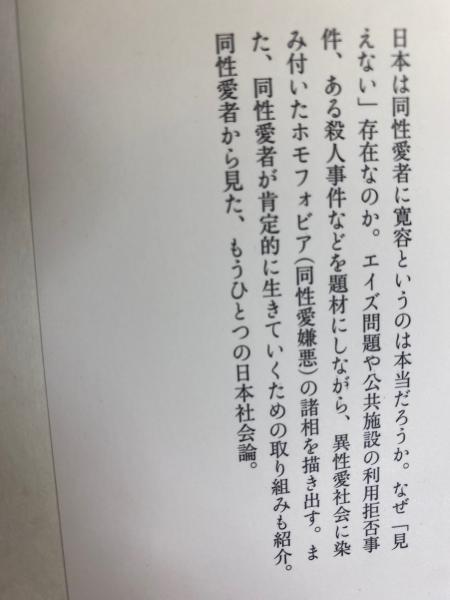 日本は同性愛者に寛容というのは本当だろうか。なぜ「見
えない」存在なのか。エイズ問題や公共施設の利用拒否事
件、ある殺人事件などを題材にしながら、異性愛社会に染
み付いたホモフォビア(同性愛嫌悪)の諸相を描き出す。ま
た、同性愛者が肯定的に生きていくための取り組みも紹介。
同性愛者から見た、もうひとつの日本社会論。